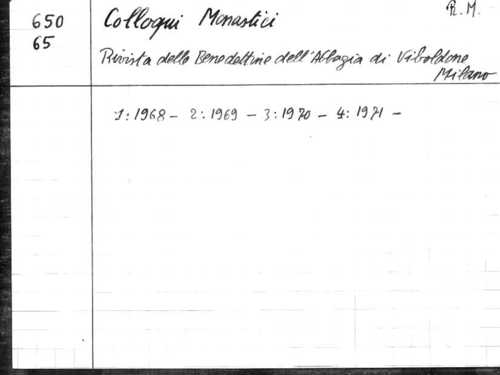 650
65
Colloqui Monastici
R. M.
Rivista delle Benedettine dell'Abbazia di Viboldone
Milano
1: 1968 - 2: 1969 - 3: 1970 - 4: 1971 -